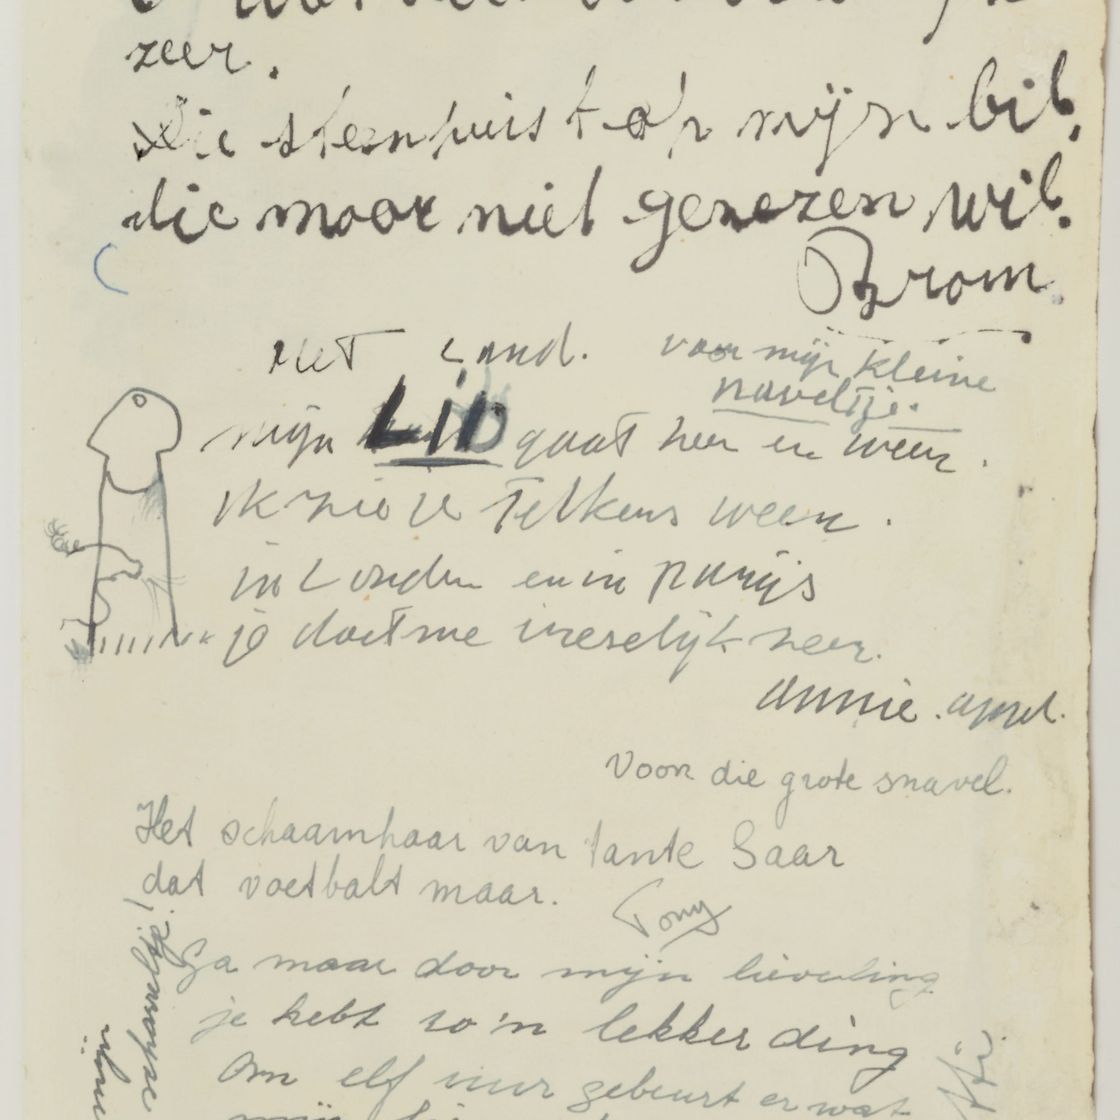 zeer.
Die steenpuist op mijn bil,
die maar niet genezen wil.
Brom.
Het Land.
voor mijn kleine
naveltje.
mijn LID gaat heen en weer.
ik zie je Telkens weer.
in Londen en in Parijs
je doet me vreselijk zeer.
annie. appel.
Voor die grote snavel.
Het schaamhaar van tante Saar
dat voetbalt maar.
Tony
Ga maar door mijn lieveling
je hebt zo'n lekker ding
Om elf uur gebeurt er wat